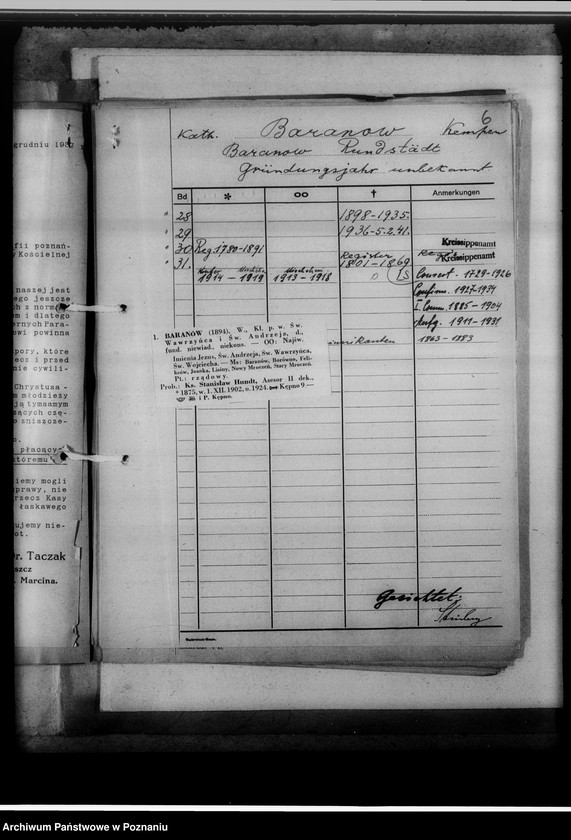 grudniu 193
fii poznań-
y Kościelnej
naszej jest
ego jeszcze
h z normą
m i dlatego
ernych Para-
wi powinna
pory, które
ecz i przed
nie cywili-
Chrystusa -
m młodzieży
ją tymsamym
szących czę-
o zniszcze-
o.
płacący-
któremu
iemy mogli
prawy, nie
rzecz Kasy
łaskawego
ujemy nie-
ot.
r. Taczak
szcz
. Marcina.
6
Kath. Baranow Kempen
Baranow Rundstädt
Gründungsjahr unbekannt
Bd * oo † Anmerkungen
28 1898-1935.
29 1936-5.2.41.
30 Reg. 1780-1891 Kreissippenamt
31. Register
1801-1869 Kreissippenamt
1914-1919 1913-1918 0 LS Convert. - 1729-1926
Confirm. 1927-1934
I. Comm. 1885-1904
Aufg. 1911-1931
1863-1883
1. BARANÓW (1894), W., Kl. p. w. Św.
Wawrzyńca i Św. Andrzeja, d.,
fund. niewiad., niekons. — OO: Najśw.
Imienia Jezus, Św. Andrzeja, Św. Wawrzyńca,
Św. Wojciecha. — Ms: Baranów, Borówno, Feli-
ków, Joanka, Lisiny, Nowy Mroczeń, Stary Mroczeń.
Pt.: rządowy.
Prob.: Ks. Stanisław Hundt, Asesor II dek.,
* 1875, w. 1. XII. 1902, n. 1924. Kępno 9 —
i P. Kępno.
Gesichtet:
Archiwum Państwowe w Poznaniu